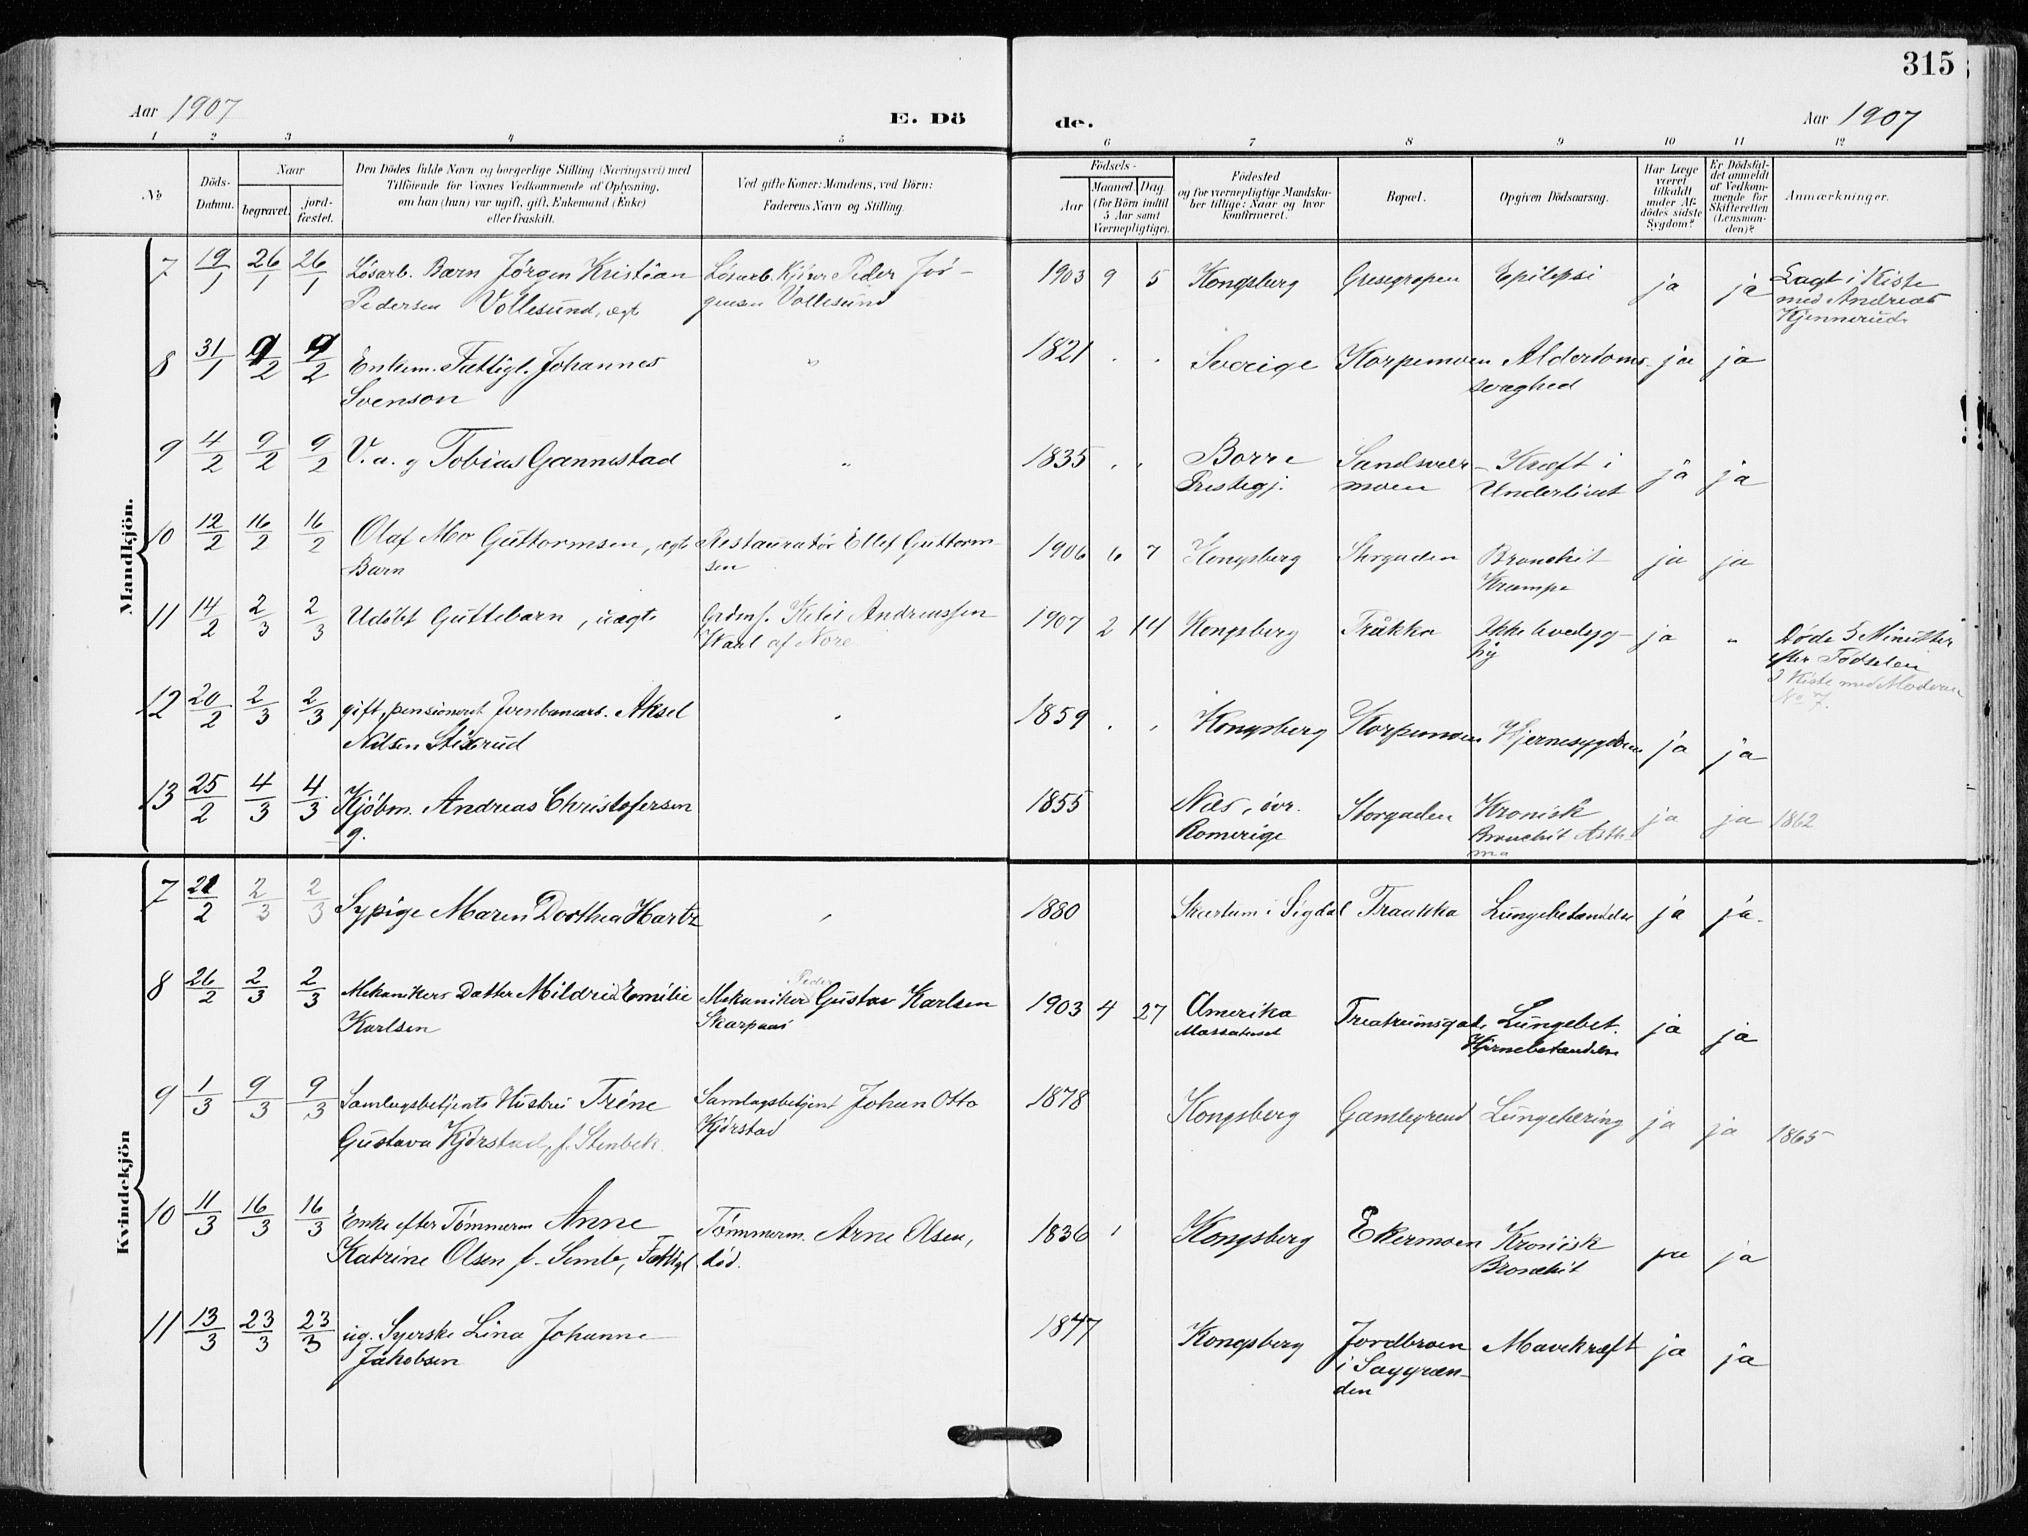 315
Aar 1907
E. Dö
de.
Aar 1907
1 2 3 4 5 6 7 8 9 10 11 12
No
Döds-
Datum.
Naar
begravet.
jord-
fæstet.
Den Dödes fulde Navn og borgerlige Stilling (Næringsvei) med
Tilföiende for Voxnes Vedkommende af Oplysning,
om han (hun) var ugift, gift, Enkemand (Enke)
eller fraskilt.
Ved gifte Koner: Mandens, ved Börn:
Faderens Navn og Stilling.
Födsels-
Aar
Maaned Dag
(for Börn indtil
5 Aar samt
Værnepligtige).
Födested
og for værnepligtige Mandska-
ber tillige: Naar og hvor
konfirmeret.
Bopæl.
Opgiven Dödsaarsag.
Har Læge
været
tilkaldt
under Af-
dödes sidste
Sygdom?
Er Dödsfal-
det anmeldt
af Vedkom-
mende for
Skifteretten
(Lensman-
den)?
Anmærkninger.
Mandkjön.
7 19/1 26/1 26/1 Løsarb. Barn Jörgen Kristian Løsarb. Peder Jör- 1903 9 5 Kongsberg Gresegropen Epilepsi ja ja Lagt i Kiste
Pedersen Vollesund, ægt gensen Vollesund med Andreas
Kjennerud.
8 31/1 9/2 9/2 Enkem. Fattigl. Johannes " 1821 . . Sverige Korpemoen Alderdoms- ja ja
Svenson svaghed
9 4/2 9/2 9/2 V. a. g Tobias Gannestad " 1835 . . Borre Sandsvær- Kræft i ja ja
Prestegj. moen Underlivet
10 12/2 16/2 16/2 Olaf Mo Guttormsen, ægte Restauratør Ellef Guttorm- 1906 6 7 Kongsberg Storgaden Bronchit ja ja
Barn sen Krampe
11 14/2 2/3 2/3 Udøbt Guttebarn, uægte Ketil Andreassen 1907 2 14 Kongsberg Tråkka Ikke livedyg- ja " Døde 5 Minutter
af Nore tig efter Fødselen
I Kiste med Moderen
No 7.
12 20/2 2/3 2/3 gift, pensioneret Jernbanearb. Aksel " 1859 . . Kongsberg Korpemoen Hjernesygdom ja ja
Nilsen
13 25/2 4/3 4/3 Kjöbm. Andreas Christofersen 1855 Næs, øvr. Storgaden Kronisk ja ja 1862
g. Romerige Bronchit Asth-
ma
Kvindekjön
7 21/2 2/3 2/3 Sypige Maren Dorthea Hartz " 1880 i Sigdal Traakka Lungebetændelse ja ja.
8 26/2 2/3 2/3 Mekanikers Datter Mildrid Emilie Mekaniker Peder Gustav Karlsen 1903 4 27 Amerika Teatrumsgad. Lungebet. ja ja
Karlsen Skarpaas Hjernebetændelse
9 1/3 9/3 9/3 Samlagsbetjents Hustru Trine Samlagsbetjent Johan Otto 1878 Kongsberg Gamlegrend Lungetæring ja ja 1865
Gustava Kjörstad, f. Stenbek. Kjörstad
10 11/3 16/3 16/3 Enke efter Tömmerm Anne Tömmerm. Arne Olsen, 1836 Kongsberg Ekermoen Kronisk ja ja
Katrine Olsen f. Fattigl. död. Bronchit
11 13/3 23/3 23/3 ug. Syerske Lina Johanne 1847 Kongsberg Jordbroen Mavekræft ja ja
Jakobsen i Saggræn-
den